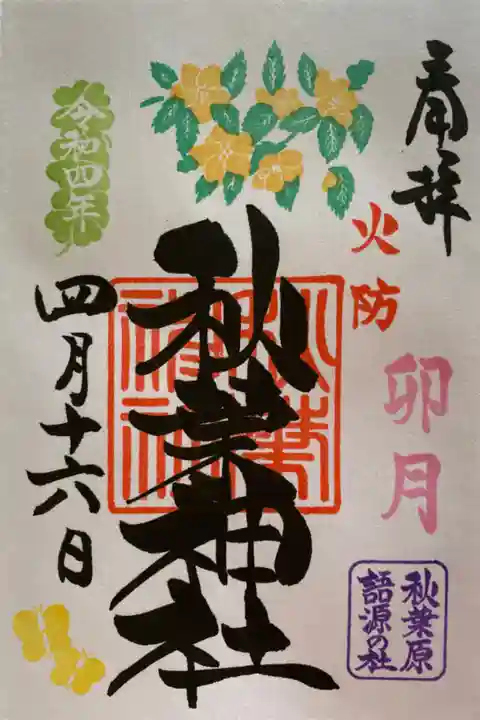 奉拝
火防
卯月
秋葉原
語源の社
秋葉神社
令和四年
四月十六日